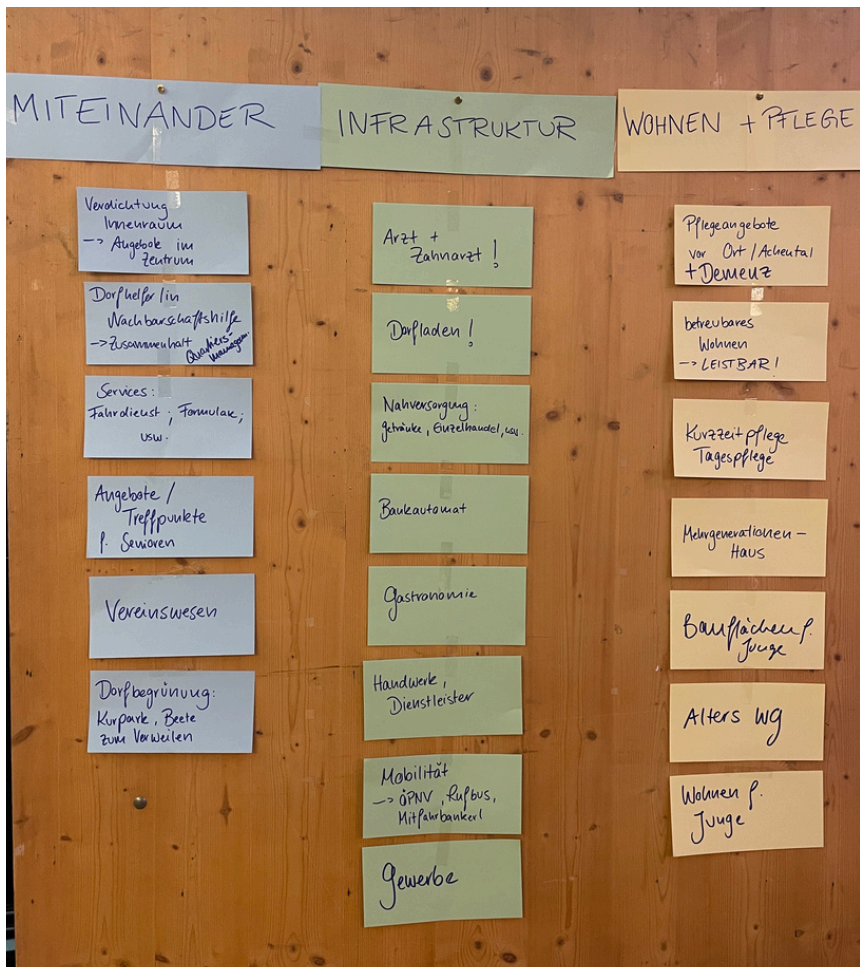 MITEINANDER
Verdichtung
Innenraum
--> Angebote im
Zentrum
Dorfhelfer/in
Nachbarschaftshilfe
--> Zusammenhalt
Quartiers-
managem.
Services:
Fahrdienst; Formulare;
usw.
Angebote /
Treffpunkte
f. Senioren
Vereinswesen
Dorfbegrünung:
Kurpark, Beete
zum Verweilen
INFRASTRUKTUR
Arzt +
Zahnarzt!
Dorfladen!
Nahversorgung:
Getränke, Einzelhandel, usw.
Bankautomat
Gastronomie
Handwerk,
Dienstleister
Mobilität
--> ÖPNV, Rufbus,
Mitfahrbankerl
Gewerbe
WOHNEN + PFLEGE
Pflegeangebote
vor Ort / Achental
+ Demenz
betreubares
Wohnen
--> LEISTBAR!
Kurzzeitpflege
Tagespflege
Mehrgenerationen-
Haus
Bauflächen f.
Junge
Alters WG
Wohnen f.
Junge